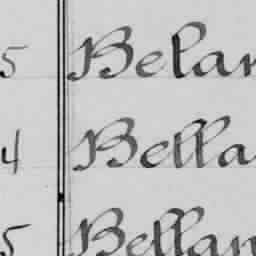 5 Belan
4 Bella
5 Bellan